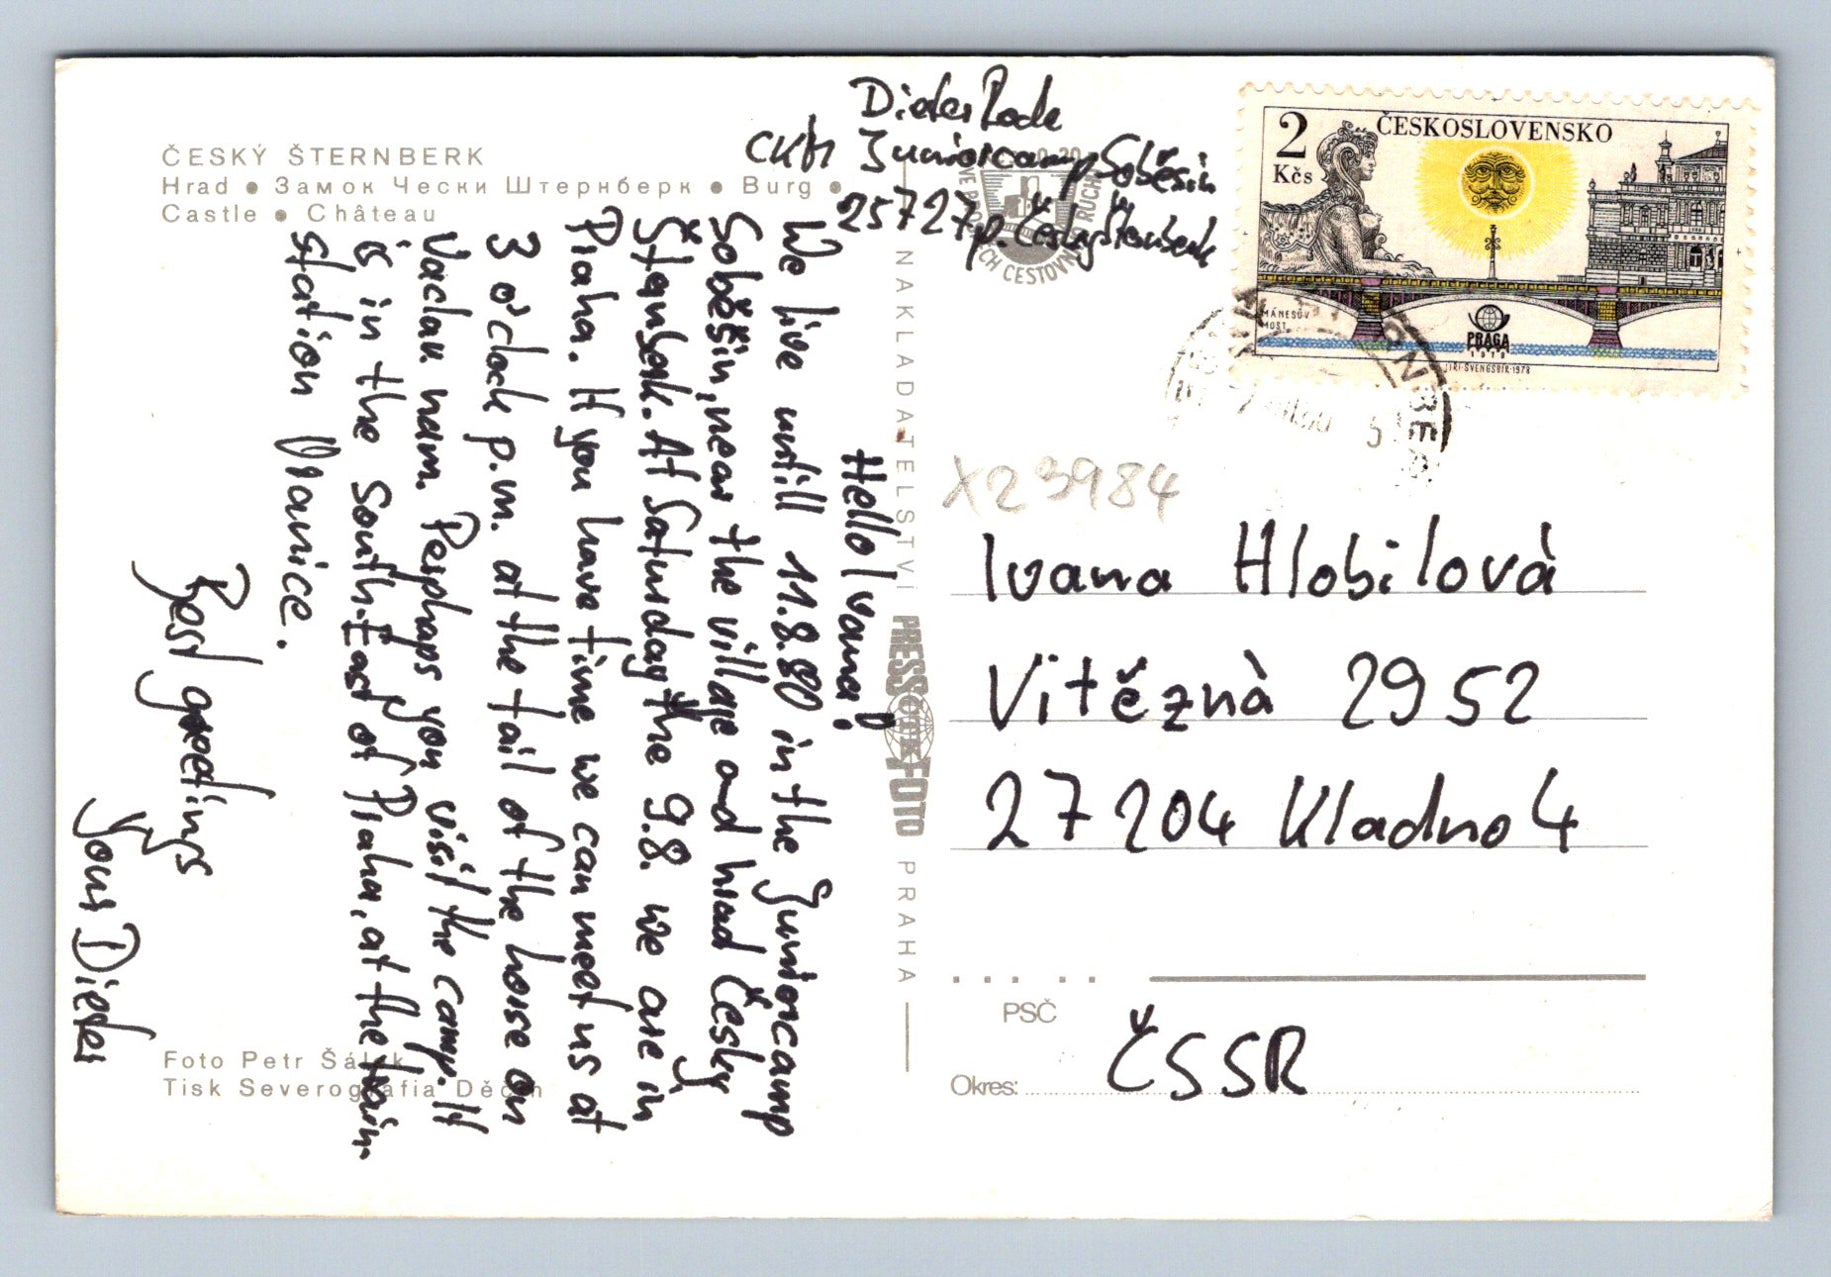 ČESKÝ ŠTERNBERK
Hrad • Замок Чески Штернберк • Burg •
Castle • Château
Dieter Rode
CKM Juniorcamp Soběsin
25727 p. Český Šternberk
Hello Ivana!
We live untill 11.8.80 in the Juniorcamp
Soběšin, near the village and hrad Česky
Šternberk. At Saturday the 9.8. we are in
Praha. If you have time we can meet us at
3 o'clock p.m. at the tail of the horse on
Vaclav nam. Perphaps you visit the camp. It
is in the South-East of Praha, at the train-
station Vranice.
Best greetings
Your Dieter
Foto Petr
Tisk Severografia Děčín
NAKLADATELSTVÍ PRESSFOTO PRAHA
2
Kčs
ČESKOSLOVENSKO
MÁNESŮV
MOST
PRAGA
1978
JIŘÍ ŠVENGSBÍR 1978
X23984
Ivana Hlobilovà
Vitěznà 2952
27204 Kladno 4
PSČ
Okres: ČSSR